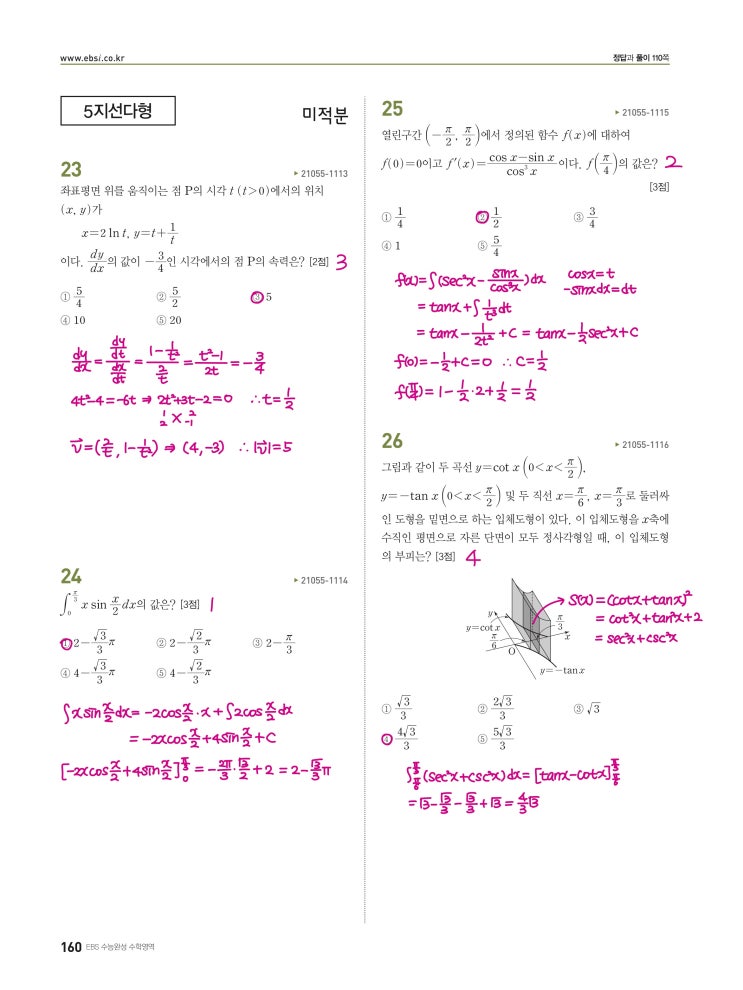 www.ebsi.co.kr
정답과 풀이 110쪽
5지선다형
미적분
23
▶ 21055-1113
좌표평면 위를 움직이는 점 P의 시각 t (t>0)에서의 위치
(x, y)가
x=2 ln t, y=t+1/t
이다. dy/dx의 값이 -3/4인 시각에서의 점 P의 속력은? [2점] 3
① 5/4 ② 5/2 ③ 5
④ 10 ⑤ 20
dy/dx = (dy/dt)/(dx/dt) = (1-1/t²)/(2/t) = (t²-1)/2t = -3/4
4t²-4=-6t ⇒ 2t²+3t-2=0 ∴t=1/2
1 2
2 × -1
v⃗=(2/t, 1-1/t²) ⇒ (4, -3) ∴|v⃗|=5
24
▶ 21055-1114
∫₀^(π/3) x sin x/2 dx의 값은? [3점] 1
① 2-√3/3 π ② 2-√2/3 π ③ 2-π/3
④ 4-√3/3 π ⑤ 4-√2/3 π
∫x sin x/2 dx = -2cos x/2 · x + ∫2cos x/2 dx
= -2xcos x/2 + 4sin x/2 + C
[-2xcos x/2 + 4sin x/2]₀^(π/3) = -2π/3 · √3/2 + 2 = 2-√3/3 π
25
▶ 21055-1115
열린구간 (-π/2, π/2)에서 정의된 함수 f(x)에 대하여
f(0)=0이고 f′(x)=(cos x-sin x)/cos³ x이다. f(π/4)의 값은? 2
[3점]
① 1/4 ② 1/2 ③ 3/4
④ 1 ⑤ 5/4
f(x)=∫(sec²x - sinx/cos³x)dx cosx=t
-sinxdx=dt
= tanx+∫1/t³ dt
= tanx - 1/2t² + C = tanx - 1/2 sec²x + C
f(0)=-1/2+C=0 ∴C=1/2
f(π/4)=1-1/2·2+1/2=1/2
26
▶ 21055-1116
그림과 같이 두 곡선 y=cot x (0<x<π/2),
y=-tan x (0<x<π/2) 및 두 직선 x=π/6, x=π/3로 둘러싸
인 도형을 밑면으로 하는 입체도형이 있다. 이 입체도형을 x축에
수직인 평면으로 자른 단면이 모두 정사각형일 때, 이 입체도형
의 부피는? [3점] 4
S(x)=(cotx+tanx)²
= cot²x+tan²x+2
= sec²x+csc²x
y
y=cot x
π/6
O
π/3
x
y=-tan x
① √3/3 ② 2√3/3 ③ √3
④ 4√3/3 ⑤ 5√3/3
∫_(π/6)^(π/3) (sec²x+csc²x)dx=[tanx-cotx]_(π/6)^(π/3)
=√3-√3/3-√3/3+√3=4/3√3
160 EBS 수능완성 수학영역